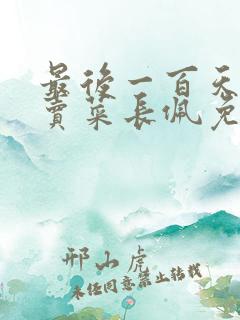 最後一百天
賣菜長佩免
邢山虎
未经同意禁止转载